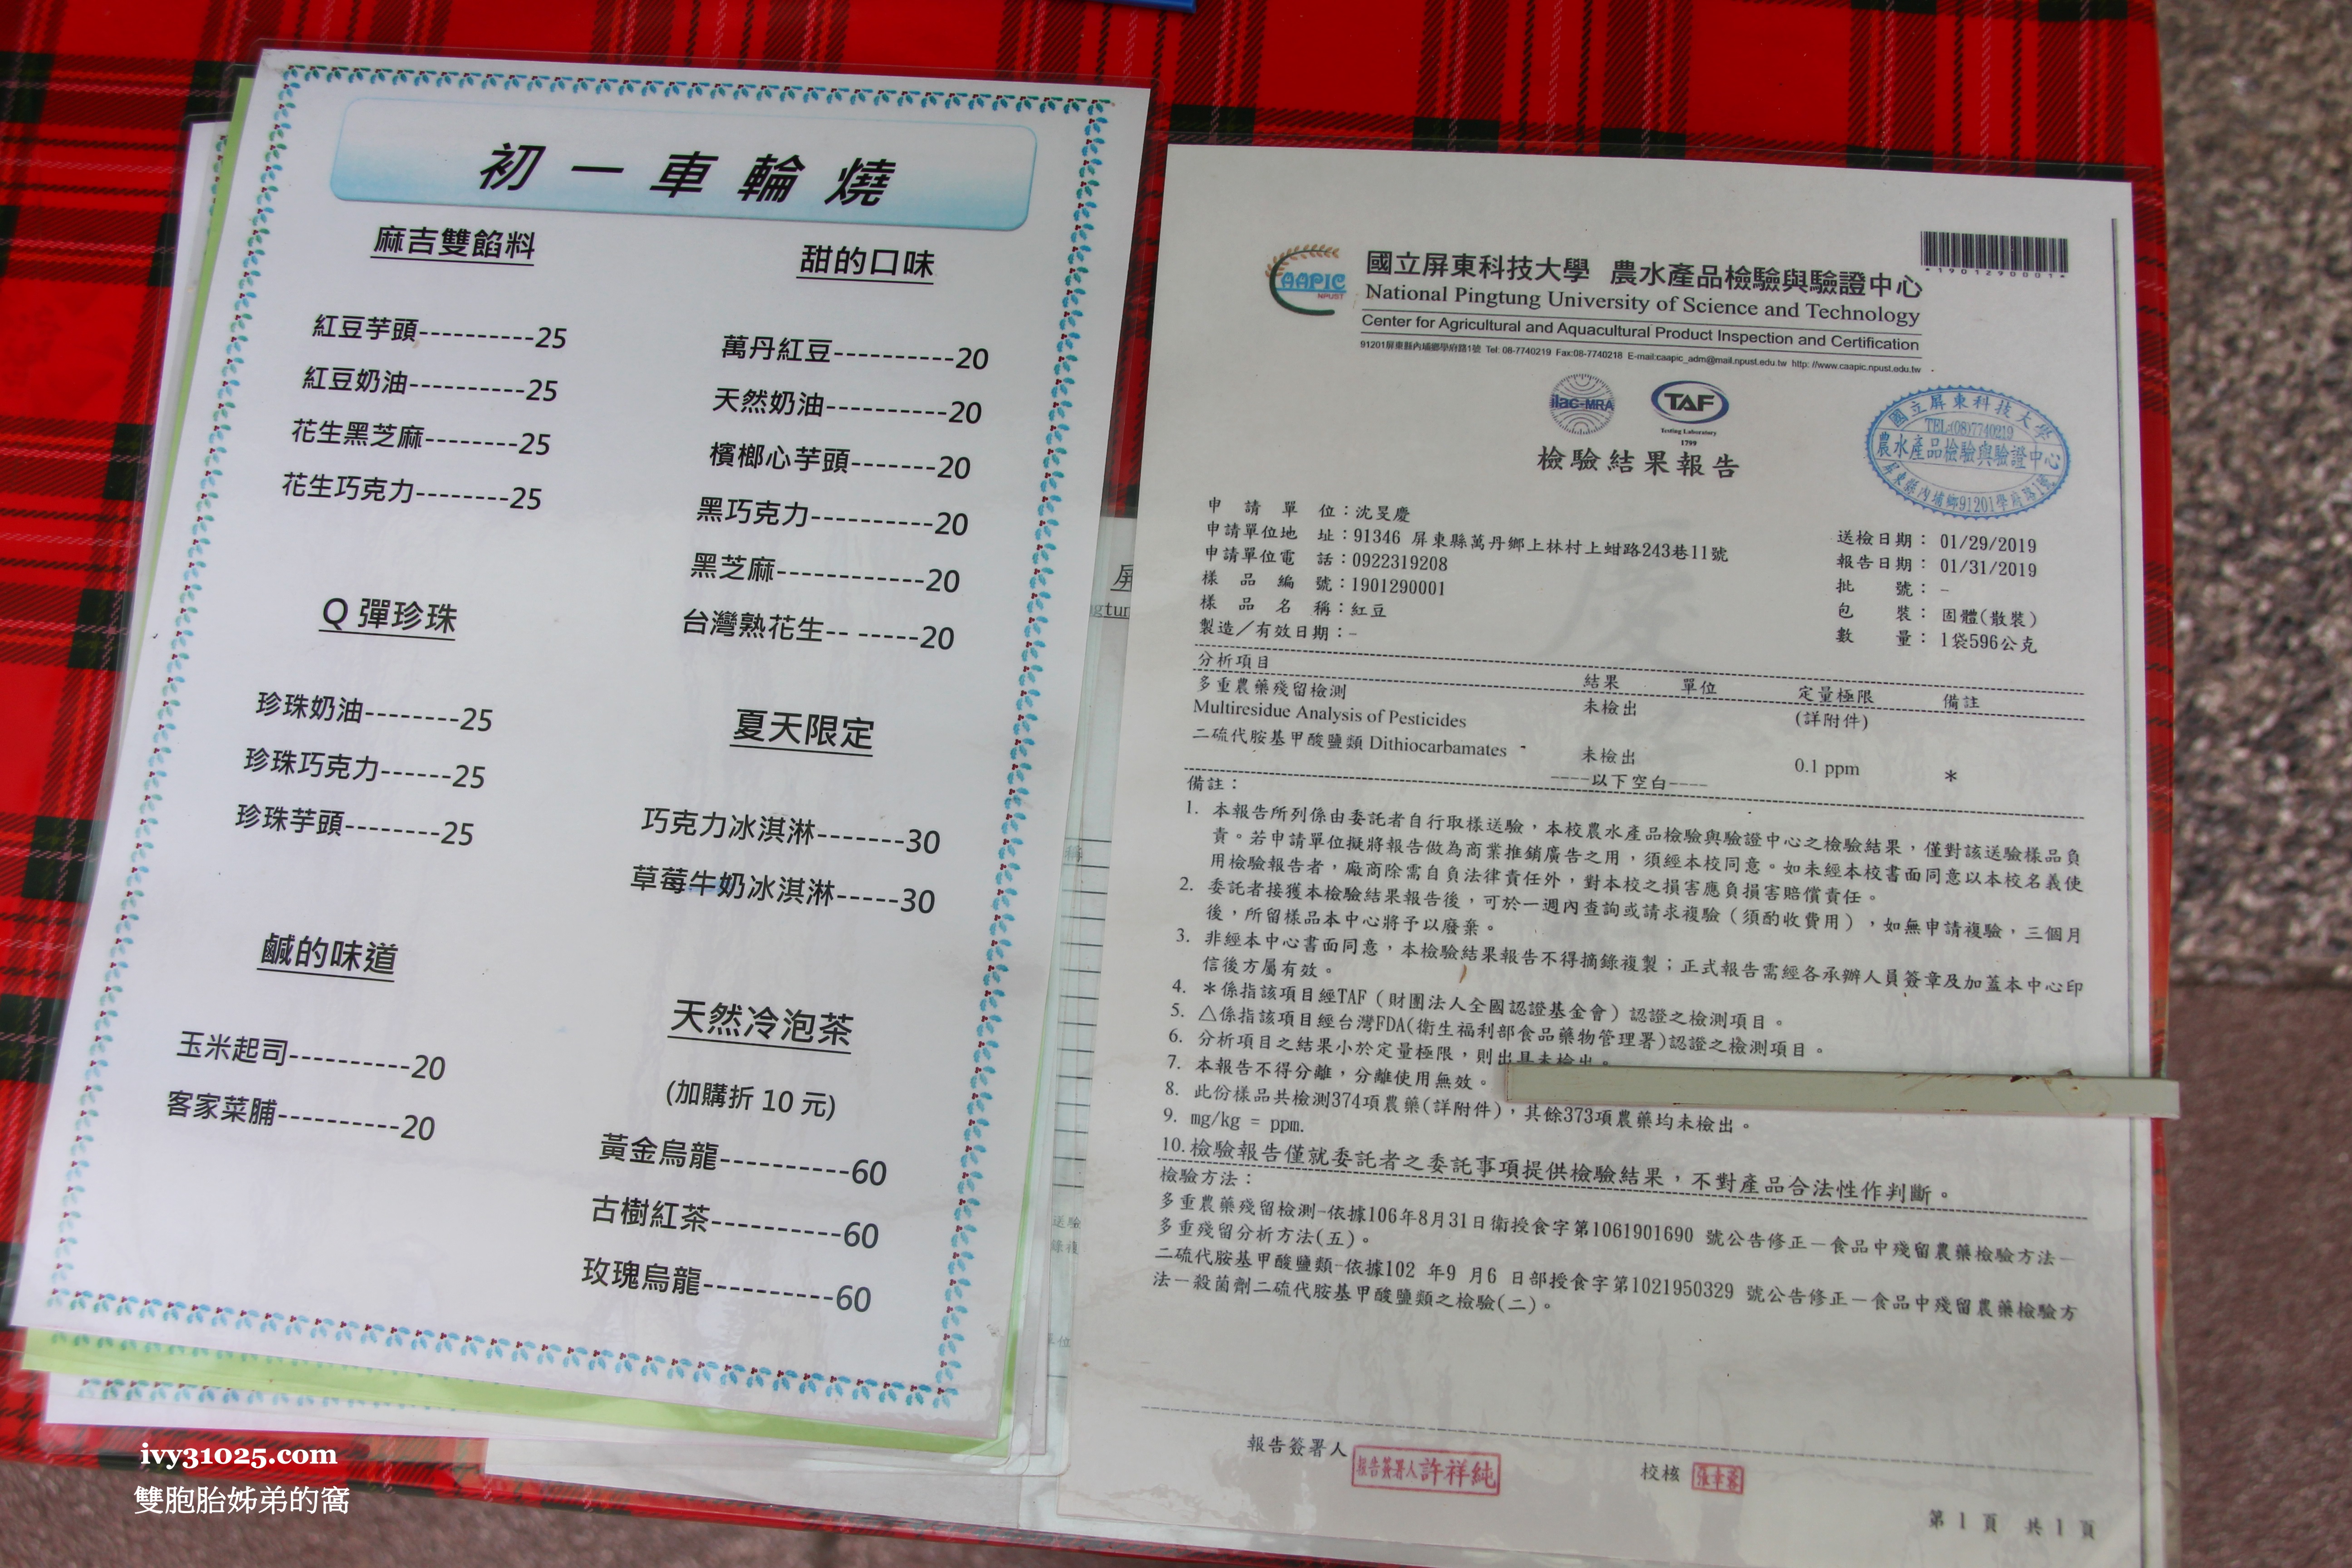 初一車輪燒
麻吉雙餡料
紅豆芋頭----------25
紅豆奶油----------25
花生黑芝麻--------25
花生巧克力--------25
Q 彈珍珠
珍珠奶油--------25
珍珠巧克力------25
珍珠芋頭--------25
鹹的味道
玉米起司----------20
客家菜脯----------20
甜的口味
萬丹紅豆----------20
天然奶油----------20
檳榔心芋頭-------20
黑巧克力----------20
黑芝麻------------20
台灣熟花生-- -----20
夏天限定
巧克力冰淇淋-------30
草莓牛奶冰淇淋-----30
天然冷泡茶
(加購折 10 元)
黃金烏龍----------60
古樹紅茶----------60
玫瑰烏龍----------60
*1901290001*
CAAPIC
NPUST
國立屏東科技大學 農水產品檢驗與驗證中心
National Pingtung University of Science and Technology
Center for Agricultural and Aquacultural Product Inspection and Certification
91201屏東縣內埔鄉學府路1號 Tel: 08-7740219 Fax:08-7740218 E-mail:caapic_adm@mail.npust.edu.tw http: //www.caapic.npust.edu.tw
ilac-MRA
TAF
Testing Laboratory
1799
檢驗結果報告
國立屏東科技大學
TEL:(08)7740219
農水產品檢驗與驗證中心
屏東縣內埔鄉91201學府路1號
申請單位：沈旻慶
申請單位地址：91346 屏東縣萬丹鄉上林村上蚶路243巷11號
申請單位電話：0922319208
樣品編號：1901290001
樣品名稱：紅豆
製造／有效日期：-
送檢日期： 01/29/2019
報告日期： 01/31/2019
批號： -
包裝： 固體(散裝)
數量： 1袋596公克
分析項目 結果 單位 定量極限 備註
多重農藥殘留檢測 未檢出 (詳附件)
Multiresidue Analysis of Pesticides
二硫代胺基甲酸鹽類 Dithiocarbamates 未檢出 0.1 ppm *
----以下空白----
備註：
1. 本報告所列係由委託者自行取樣送驗，本校農水產品檢驗與驗證中心之檢驗結果，僅對該送驗樣品負
責。若申請單位擬將報告做為商業推銷廣告之用，須經本校同意。如未經本校書面同意以本校名義使
用檢驗報告者，廠商除需自負法律責任外，對本校之損害應負損害賠償責任。
2. 委託者接獲本檢驗結果報告後，可於一週內查詢或請求複驗（須酌收費用），如無申請複驗，三個月
後，所留樣品本中心將予以廢棄。
3. 非經本中心書面同意，本檢驗結果報告不得摘錄複製；正式報告需經各承辦人員簽章及加蓋本中心印
信後方屬有效。
4. ＊係指該項目經TAF（財團法人全國認證基金會）認證之檢測項目。
5. △係指該項目經台灣FDA(衛生福利部食品藥物管理署)認證之檢測項目。
6. 分析項目之結果小於定量極限，則出具未檢出。
7. 本報告不得分離，分離使用無效。
8. 此份樣品共檢測374項農藥(詳附件)，其餘373項農藥均未檢出。
9. mg/kg = ppm.
10.檢驗報告僅就委託者之委託事項提供檢驗結果，不對產品合法性作判斷。
檢驗方法：
多重農藥殘留檢測-依據106年8月31日衛授食字第1061901690 號公告修正－食品中殘留農藥檢驗方法－
多重殘留分析方法(五)。
二硫代胺基甲酸鹽類-依據102 年9 月6 日部授食字第1021950329 號公告修正－食品中殘留農藥檢驗方
法－殺菌劑二硫代胺基甲酸鹽類之檢驗(二)。
報告簽署人 報告簽署人許祥純 校核
第 1 頁 共 1 頁
ivy31025.com
雙胞胎姊弟的窩